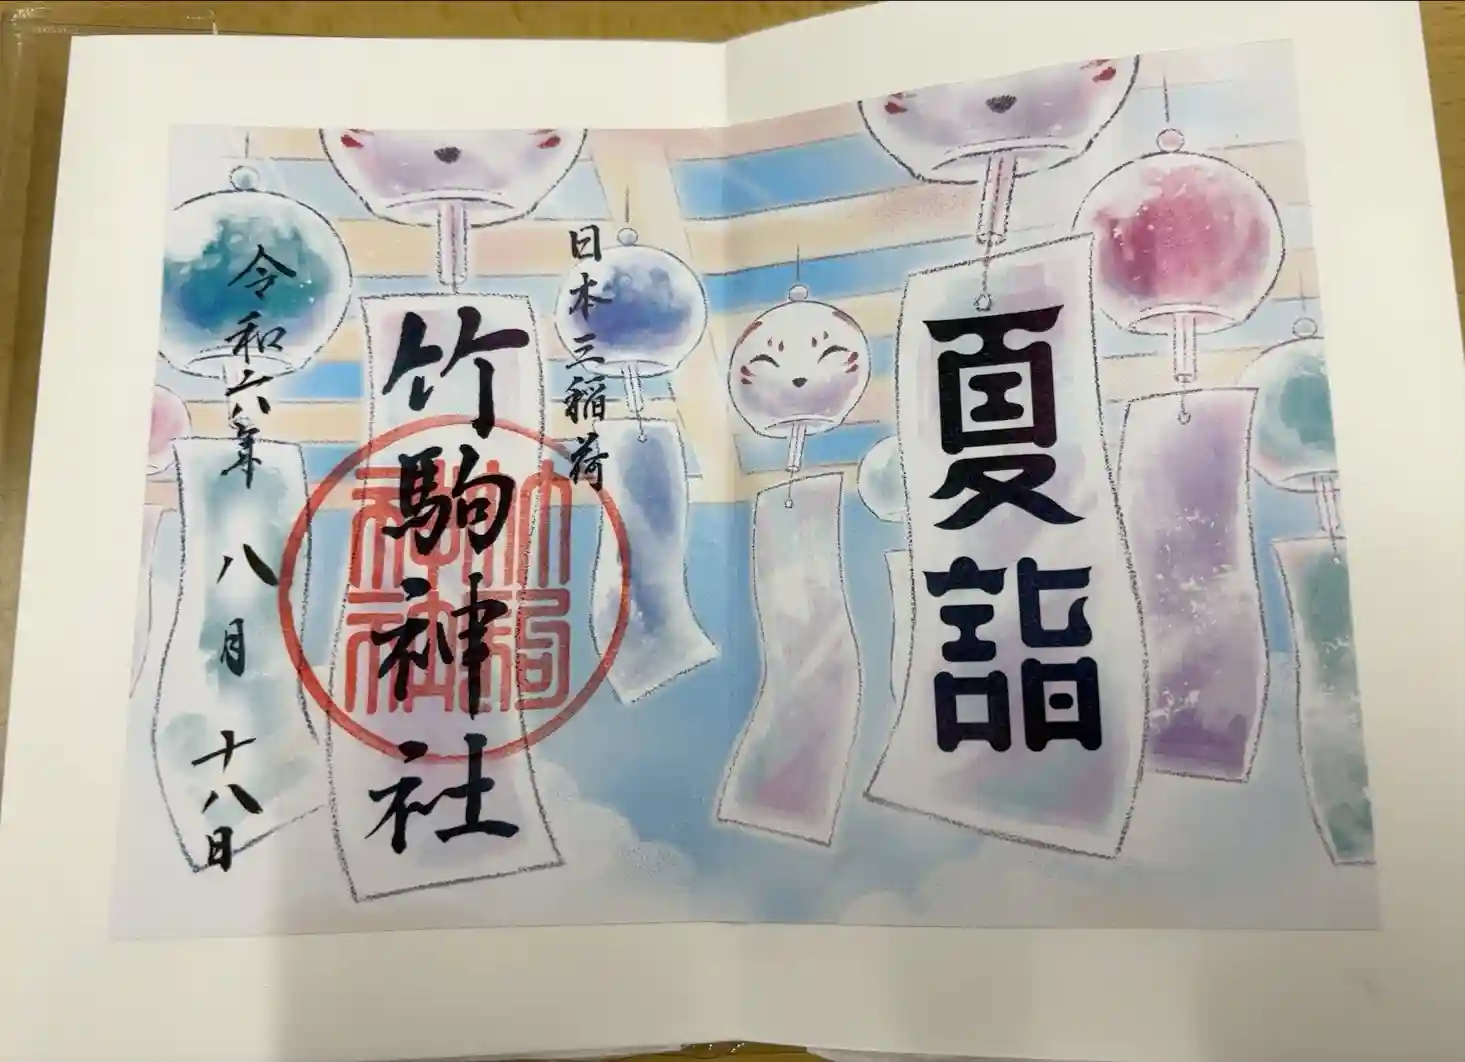 夏詣
日本三稲荷
竹駒神社
竹駒神社
令和六年 八月 十八日